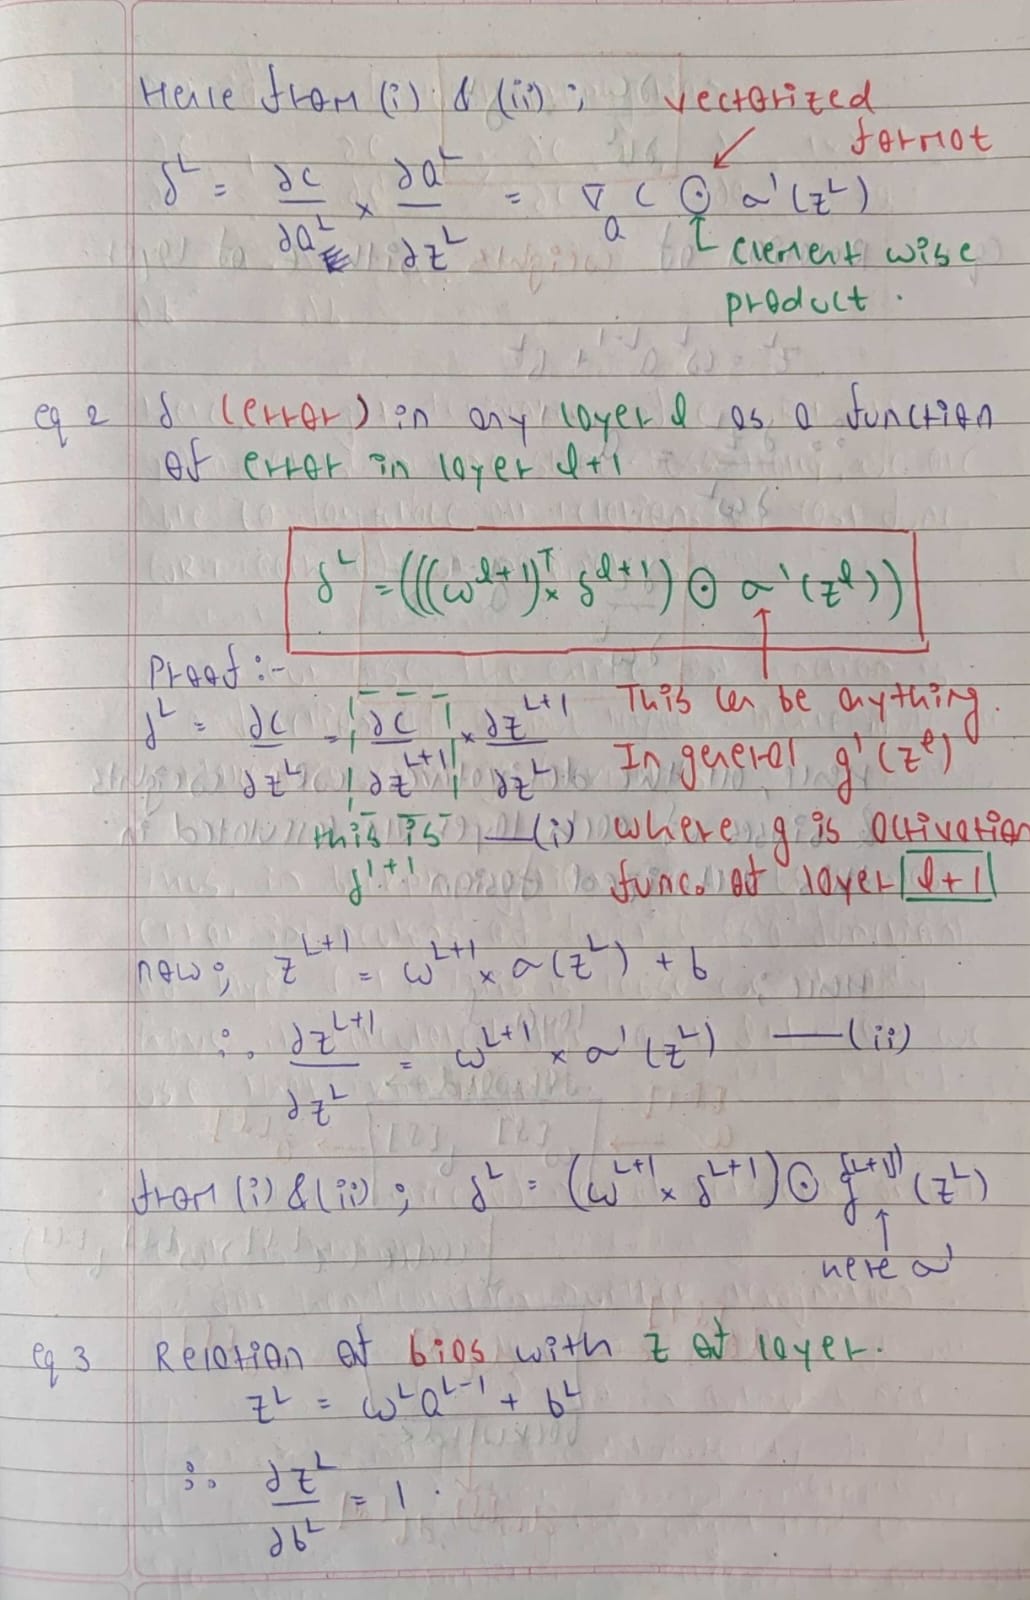 Hence from (i) & (ii) ; vectorized format
δ^L = ∂C/∂a^L × ∂a^L/∂z^L = ∇_a C ⊙ σ'(z^L)
element wise product.
eq 2 δ (error) in any layer l as a function
of error in layer l+1
δ^L = (((ω^{l+1})^T × δ^{l+1}) ⊙ σ'(z^l))
Proof :-
δ^L = ∂C/∂z^L = ∂C/∂z^{L+1} × ∂z^{L+1}/∂z^L —(i)
this is δ^{l+1}
This can be anything.
In general g'(z^l)
where g is activation
func. of layer l+1
now; z^{L+1} = ω^{L+1} × σ(z^L) + b
∴ ∂z^{L+1}/∂z^L = ω^{L+1} × σ'(z^L) —(ii)
from (i) & (ii) ; δ^L = (ω^{L+1} × δ^{L+1}) ⊙ g^{[L+1]'}(z^L)
here σ'
eq 3 Relation of bias with z of layer.
z^L = ω^L a^{L-1} + b^L
∴ ∂z^L/∂b^L = 1 .